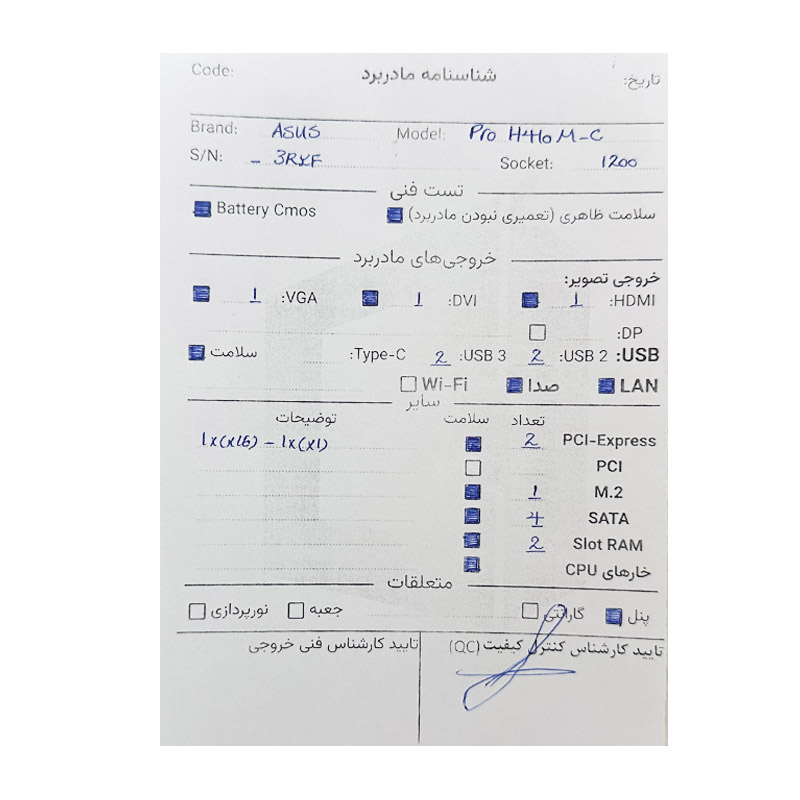 Code: شناسنامه مادربرد تاریخ:
Brand: ASUS Model: Pro H410M-C
S/N: - 3RXF Socket: 1200
تست فنی
سلامت ظاهری (تعمیری نبودن مادربرد) Battery Cmos
خروجی‌های مادربرد
خروجی تصویر:
HDMI: 1 DVI: 1 VGA: 1
DP:
USB: USB 2: 2 USB 3: 2 Type-C: سلامت
LAN صدا Wi-Fi
سایر
تعداد سلامت توضیحات
PCI-Express 2 1x(x16) - 1x(x1)
PCI
M.2 1
SATA 4
Slot RAM 2
خارهای CPU
متعلقات
پنل گارانتی جعبه نورپردازی
تایید کارشناس کنترل کیفیت (QC) تایید کارشناس فنی خروجی